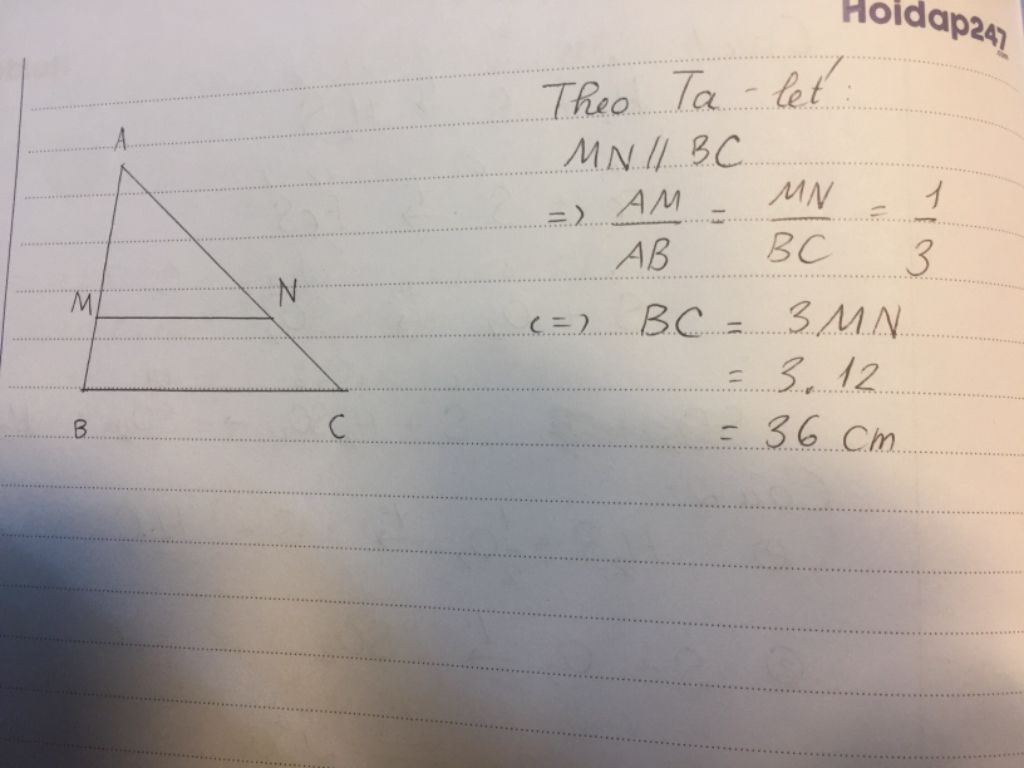 Hoidap247
.com
Theo Ta-let':
MN // BC
=> AM/AB = MN/BC = 1/3
<=> BC = 3MN
= 3.12
= 36 cm
A
M
N
B
C